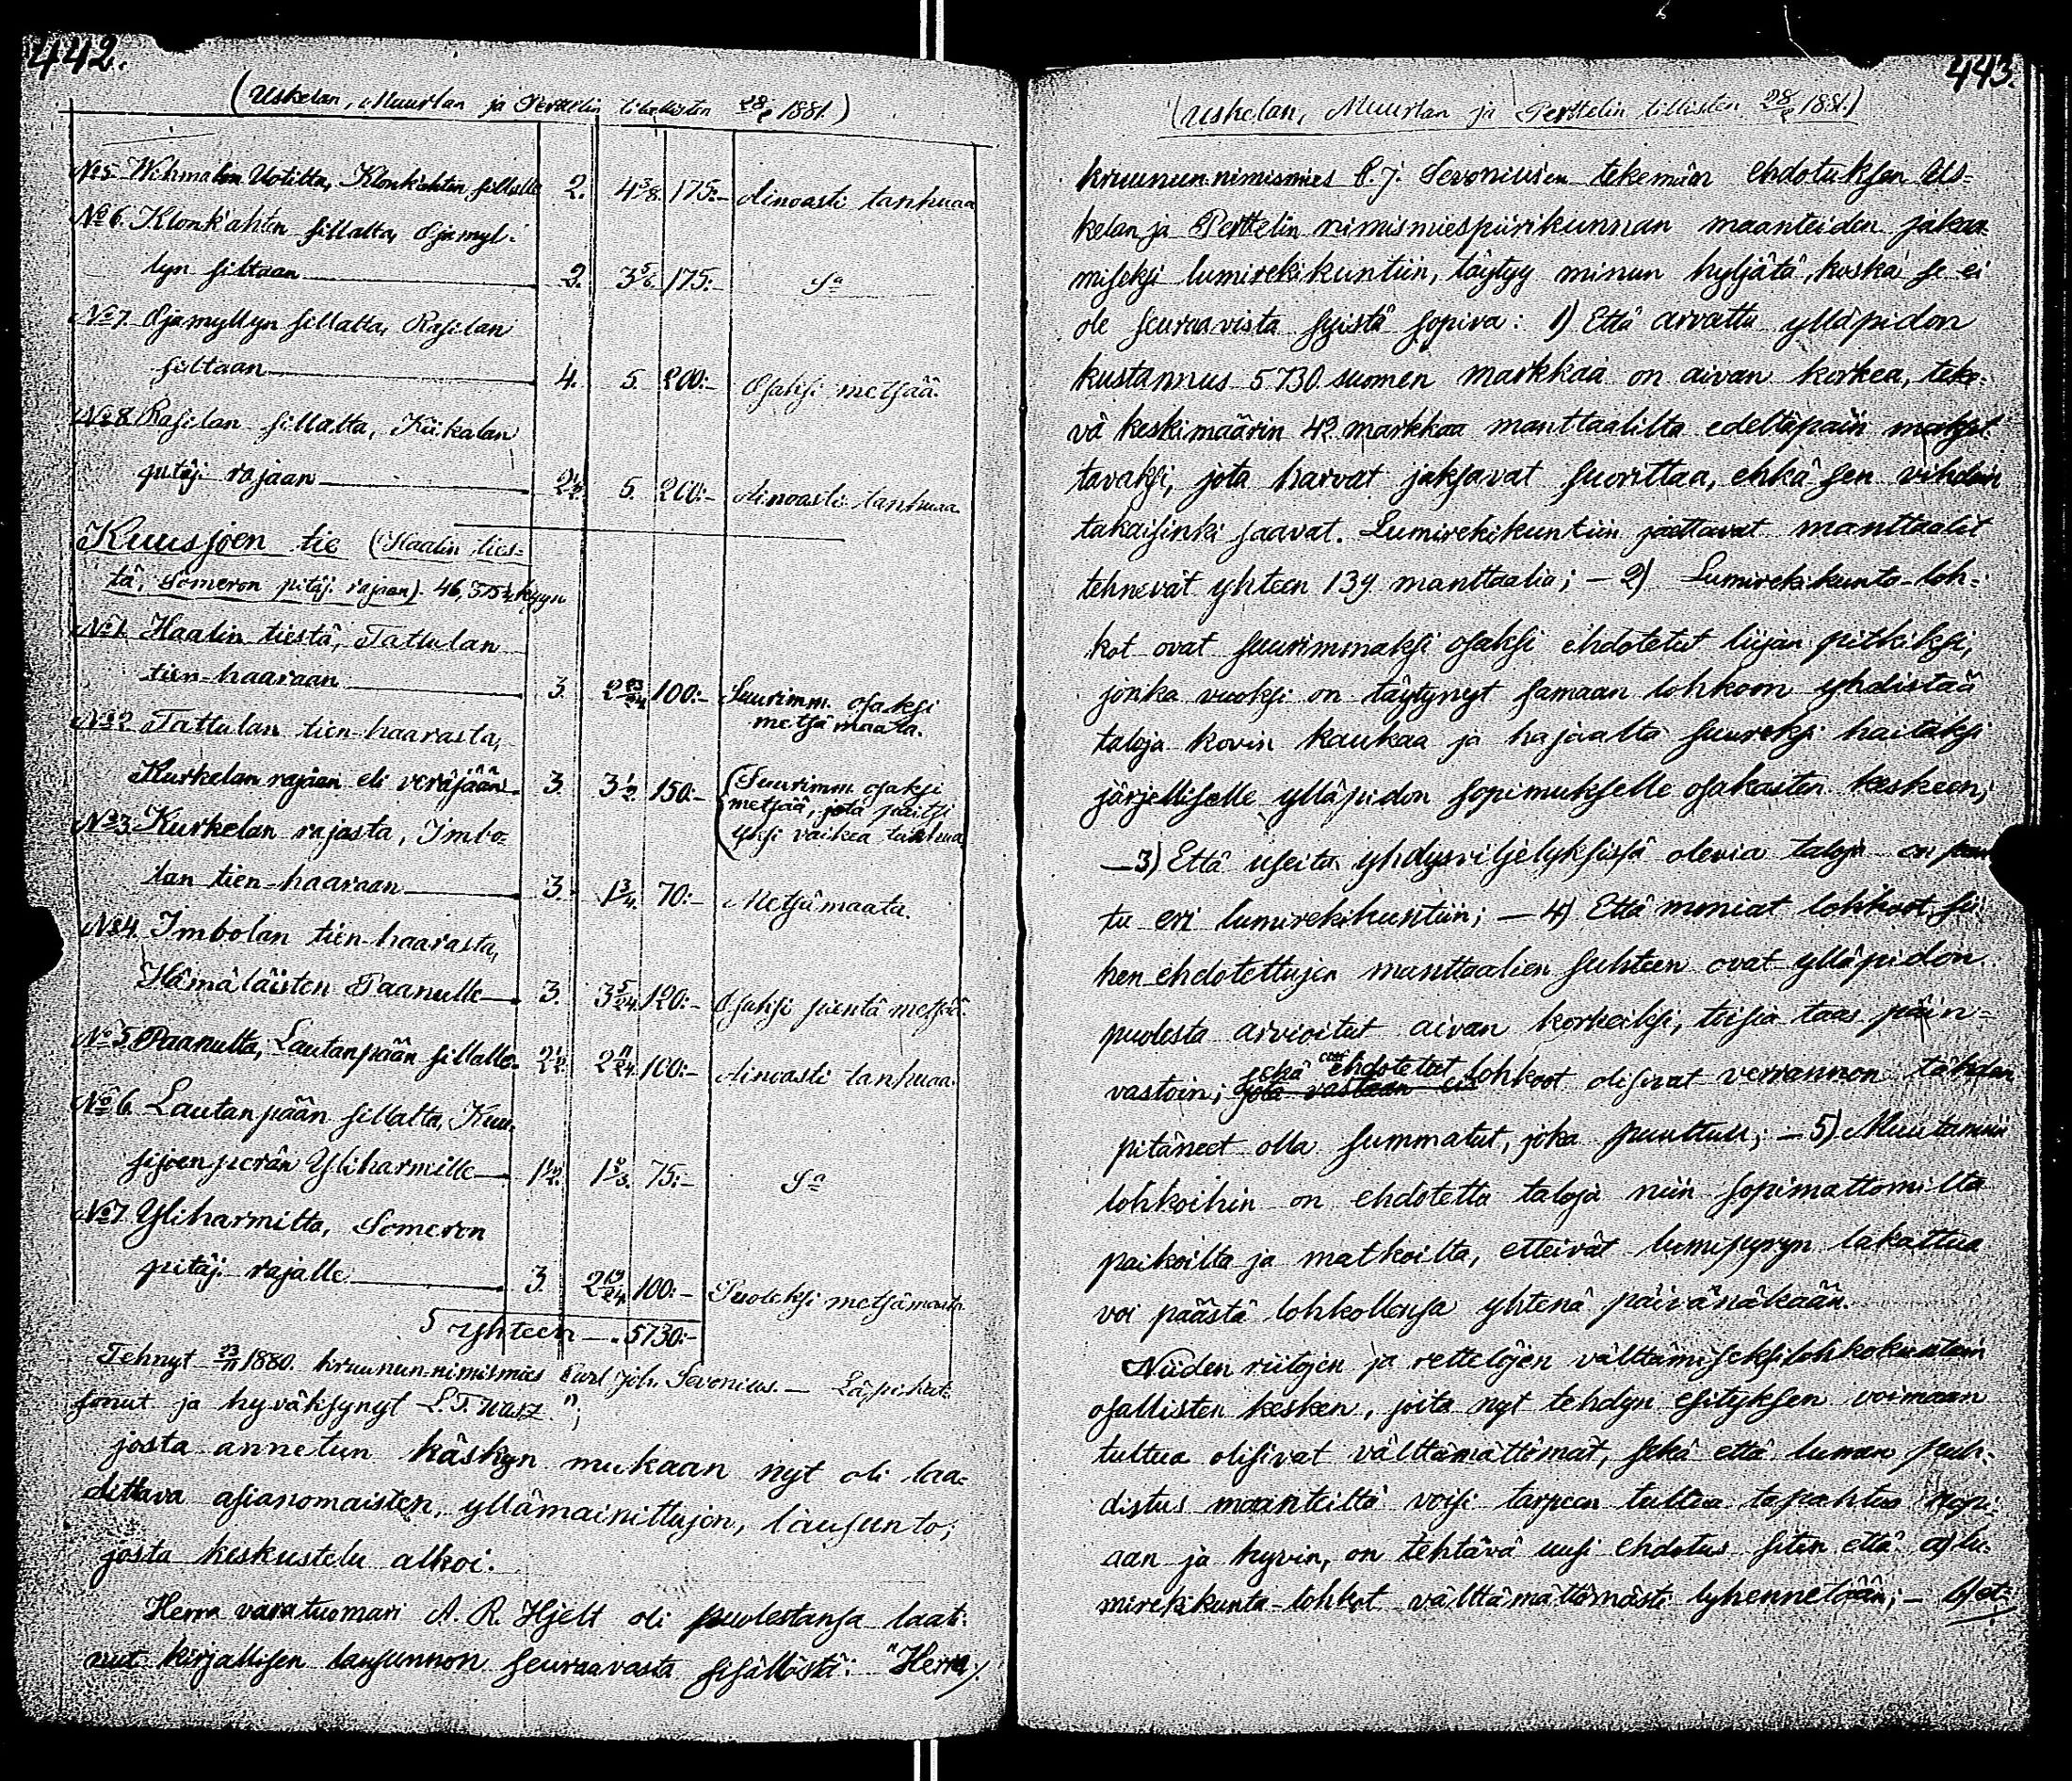 442.
(Uskelan, Muurlan ja Perttelin tilallisten 28/2 1881.)
No 5. Wihmalan Uotilta, Klonkahten sillalle 2. 4 3/8. 175:- Ainoasti tanhuaa
No 6. Klonkahten sillalta, Ojamyl-
lyn siltaan 2. 3 5/6. 175:- Sa
No 7. Ojamyllyn sillalta, Rasilan
siltaan 4. 5. 200:- Osaksi metsää.
No 8. Rasilan sillalta, Kiikalan
pitäj. rajaan 2 1/2. 5. 200:- Ainoasti tanhuaa.
Kuusjoen tie (Haalin ties-
tä, Someron pitäj. rajaan).
No 1. Haalin tiestä, Tattulan
tien-haaraan 3. 2 23/24 100:- Suurimm. osaksi
metsämaata.
No 2. Tattulan tien-haarasta,
Kurkelan rajaan eli veräjään 3. 3 1/2. 150:- (Suurimm. osaksi
metsää, jota paitsi
yksi vaikea tanhua
No 3. Kurkelan rajasta, Imbo-
lan tien-haaraan 3. 1 3/4. 70:- Metsämaata.
No 4. Imbolan tien-haarasta,
Hämäläisten Paanulle 3. 3 5/24. 120:- Osaksi pientä metsää.
No 5. Paanulta, Lautanpään sillalle. 2 1/2. 2 11/24. 100:- Ainoasti tanhuaa.
No 6. Lautanpään sillalta, Kuu-
sjoenperän Yliharmille 1 1/2. 1 2/3. 75:- Sa
No 7. Yliharmilta, Someron
pitäj. rajalle 3. 2 19/24. 100:- Puoleksi metsämaata.
Yhteen 5730:-
Tehnyt 23/11 1880. kruunun-nimismies Carl Joh. Sevonius. — Läpikat-
sonut ja hyväksynyt L. T.
josta annetun käskyn mukaan nyt oli laa-
dittava asianomaisten, yllämainittujen, lausunto,
josta keskustelu alkoi.
Herra varatuomari A. R. Hjelt oli puolestansa laati-
nut kirjallisen lausunnon seuraavasta sisällöstä: "Herra/.
443.
(Uskelan, Muurlan ja Perttelin tilllisten 28/2 1881.)
kruunun-nimismies C. J. Sevonius'en tekemän ehdotuksen Us-
kelan ja Perttelin nimismiespiirikunnan maanteiden jakaa-
miseksi lumirekikuntiin, täytyy minun hyljätä, koska se ei
ole seuraavista syistä sopiva: 1) Että arvattu ylläpidon
kustannus 5730 suomen markkaa on aivan korkea, teke-
vä keskimäärin 42 markkaa manttaalilta edeltäpäin makset-
tavaksi, jota harvat jaksavat suorittaa, ehkä sen vihdoin
takaisinki saavat. Lumirekikuntiin jaettavat manttaalit
tehnevät yhteen 139 manttaalia; — 2) Lumirekikunta-loh-
kot ovat suurimmaksi osaksi ehdotetut liijan pitkiksi,
jonka vuoksi on täytynyt samaan lohkoon yhdistää
taloja kovin kaukaa ja hajaalta suureksi haitaksi
järjelliselle ylläpidon sopimukselle osakasten keskeen;
— 3) Että useita yhdysviljelyksissä olevia taloja on pan-
tu eri lumirekikuntiin; — 4) Että moniat lohkoot sii-
hen ehdotettujen manttaalien suhteen ovat ylläpidon
puolesta arvioitut aivan korkeiksi, toisia taas päin-
vastoin; sekä ehdotetut lohkoot olisivat verrannon tähden
pitäneet olla summatut, joka puuttuu; — 5) Muutamiin
lohkoihin on ehdotettu taloja niin sopimattomilta
paikoilta ja matkoilta, etteivät lumipyryn lakattua
voi päästä lohkollensa yhtenä päivänäkään.
Niiden riitojen ja rettelöjen välttämiseksi lohkokuntain
osallisten kesken, joita nyt tehdyn esityksen voimaan
tultua olisivat välttämättömät, sekä että lumen puh-
distus maanteiltä voisi tarpeen tultua tapahtua nopi-
aan ja hyvin, on tehtävä uusi ehdotus siten että a) lu-
mirekikunta-lohkot välttämättömästi lyhennetään; — b) ot-/